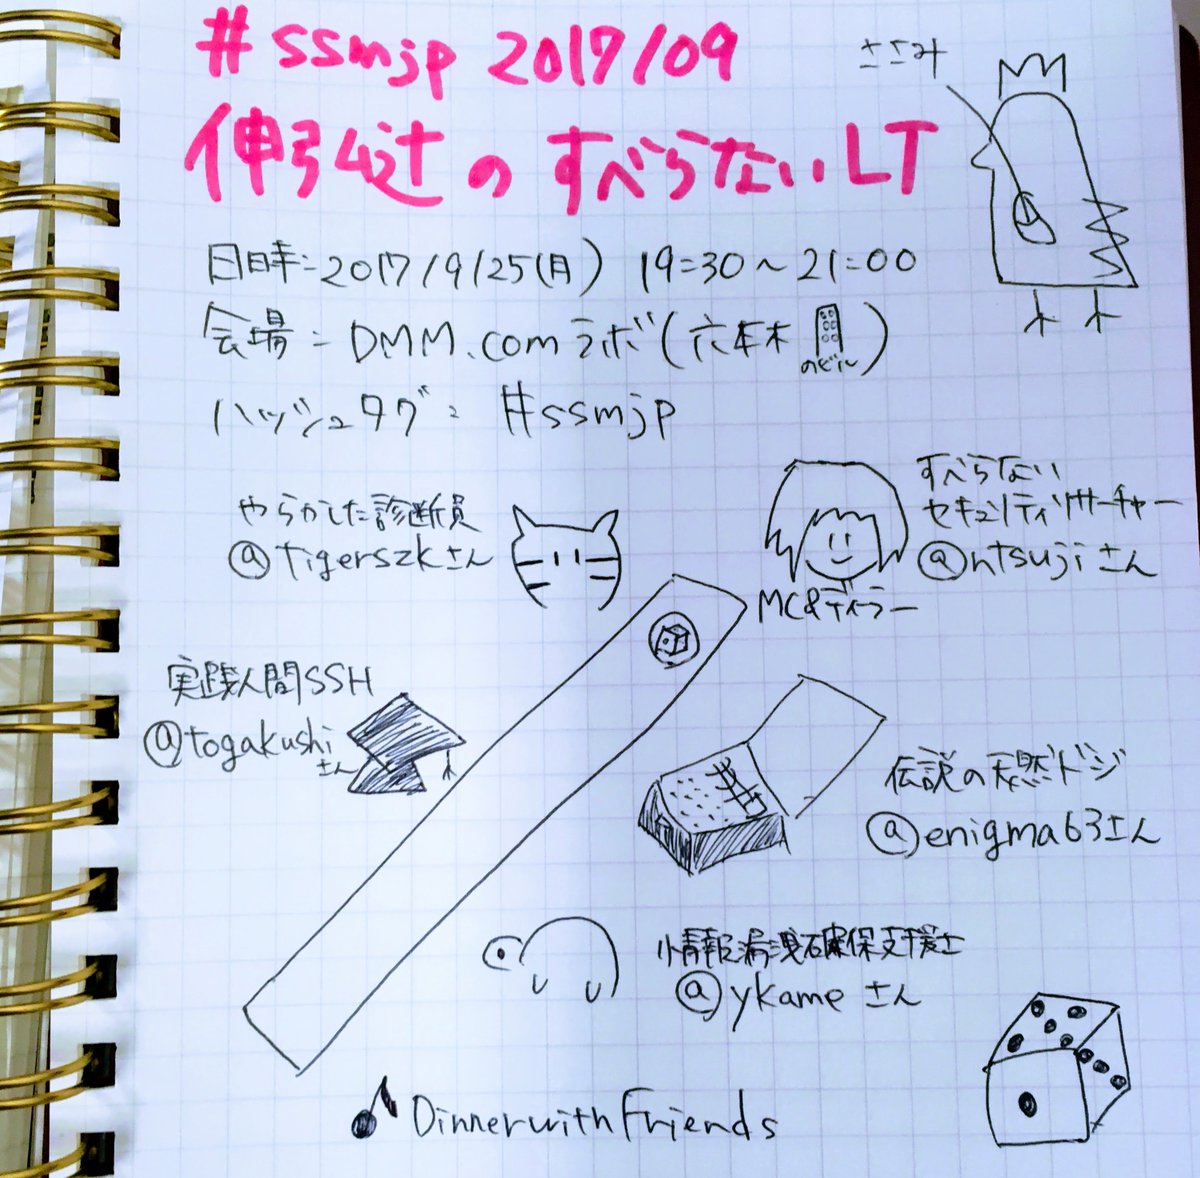 #ssmjp 2017/09
伸弘辻のすべらないLT
ささみ
日時:2017/9/25(月) 19:30〜21:00
会場:DMM.comラボ(六本木のビル)
ハッシュタグ:#ssmjp
やらかした診断員
@tigerszkさん
すべらない
セキュリティリサーチャー
@ntsujiさん
MC&ディーラー
実践人間SSH
@togakushi
さん
伝説の天然ドジ
@enigma63さん
情報漏洩確保支援士
@ykameさん
♪Dinner with Friends